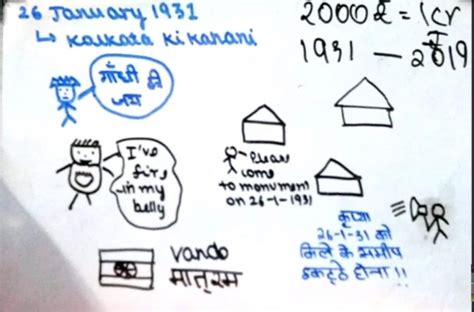 26 January 1931
↳ Kolkata ki kahani
2000 ₹ = 1cr
1931 — 2019
गाँधी की
जय
I've
fire
in my
belly
Please
come
to monument
on 26-1-1931
कृपया
26-1-31 को
किले के समीप
इकट्ठे होना !!
Vande
मातरम